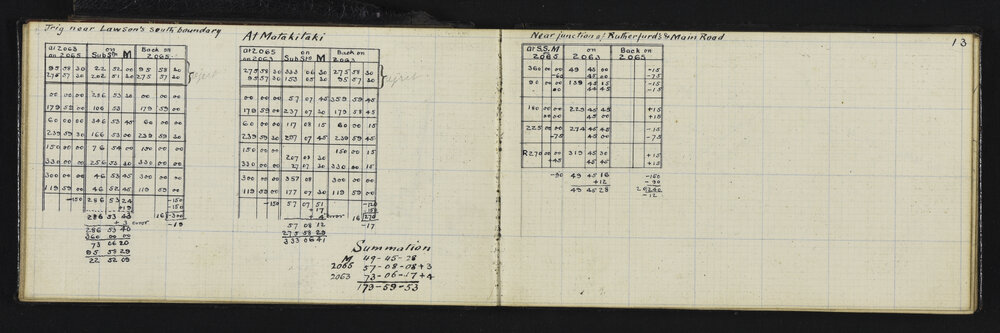 Trig near Lawson's south boundary
at 2063 on Back on
on 2065 Sub Stn M 2065
95 58 30 22 52 00 95 58 30
275 57 30 202 51 30 275 57 30
00 00 00 286 53 30 00 00 00
179 59 00 106 53 179 59 00
60 00 00 346 53 45 60 00 00
239 59 30 166 53 00 239 59 30
150 00 00 76 54 00 150 00 00
330 00 00 256 53 30 330 00 00
300 00 00 46 53 45 300 00 00
119 59 00 46 52 45 119 59 00
-150 286 53 24 -150
+19 -150
286 53 43 16 -300
+ 3 error -19
286 53 40
360 00 00
73 06 20
95 58 29
22 52 09
At Matakitaki
at 2065 on Back on
on 2063 Sub Stn M 2063
275 58 30 333 06 30 275 58 30
95 57 30 153 05 30 95 57 30
00 00 00 57 07 45 359 59 45
179 59 00 237 07 30 179 58 45
60 00 00 117 08 15 60 00 15
239 59 30 297 07 45 239 59 45
150 00 00 150 00 15
207 07 30
330 00 00 27 07 30 330 00 15
300 00 00 357 08 300 00 00
119 59 00 177 07 30 119 59 00
-150 57 07 51 -120
+17 -150
+ 4 error 16 270
57 08 12 -17
275 58 29
333 06 41
Summation
M 49-45-28
2065 57-08-08+3
2063 73-06-17+4
173-59-53
Near junction of Rutherfurd's & Main Road
13
at S.S. M on Back on
2065 2063 2065
360 00 00 49 45 00 -15
-60 45 00 -75
90 00 00 139 45 15 -15
00 44 45 -15
180 00 00 229 45 45 +15
00 00 45 00 +15
225 00 00 274 45 45 -15
-75 45 00 -75
R270 00 00 319 45 30 +15
+45 45 45 +15
-90 49 45 16 -150
+12 -90
49 45 28 20 240
-12